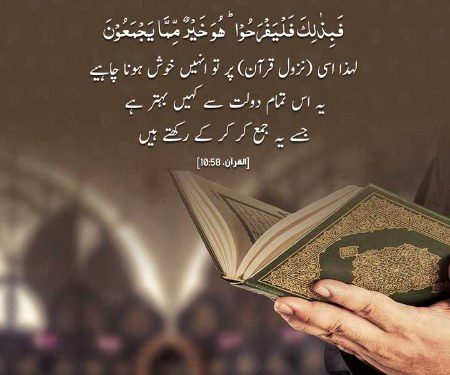 فَبِذٰلِكَ فَلْيَفْرَحُوْا ؕ هُوَ خَيْرٌ مِّمَّا يَجْمَعُوْنَ
لہٰذا اسی (نزول قرآن) پر تو انہیں خوش ہونا چاہیے
یہ اس تمام دولت سے کہیں بہتر ہے
جسے یہ جمع کر کر کے رکھتے ہیں
[القرآن، 10:58]